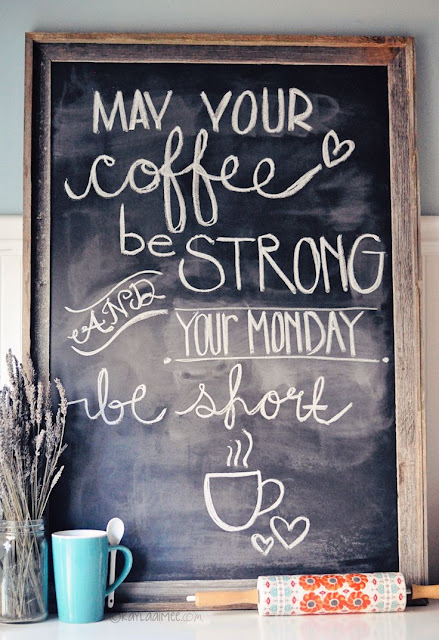 MAY YOUR
coffee
be STRONG
AND
YOUR MONDAY
be short
@KAYLAAIMEE.COM